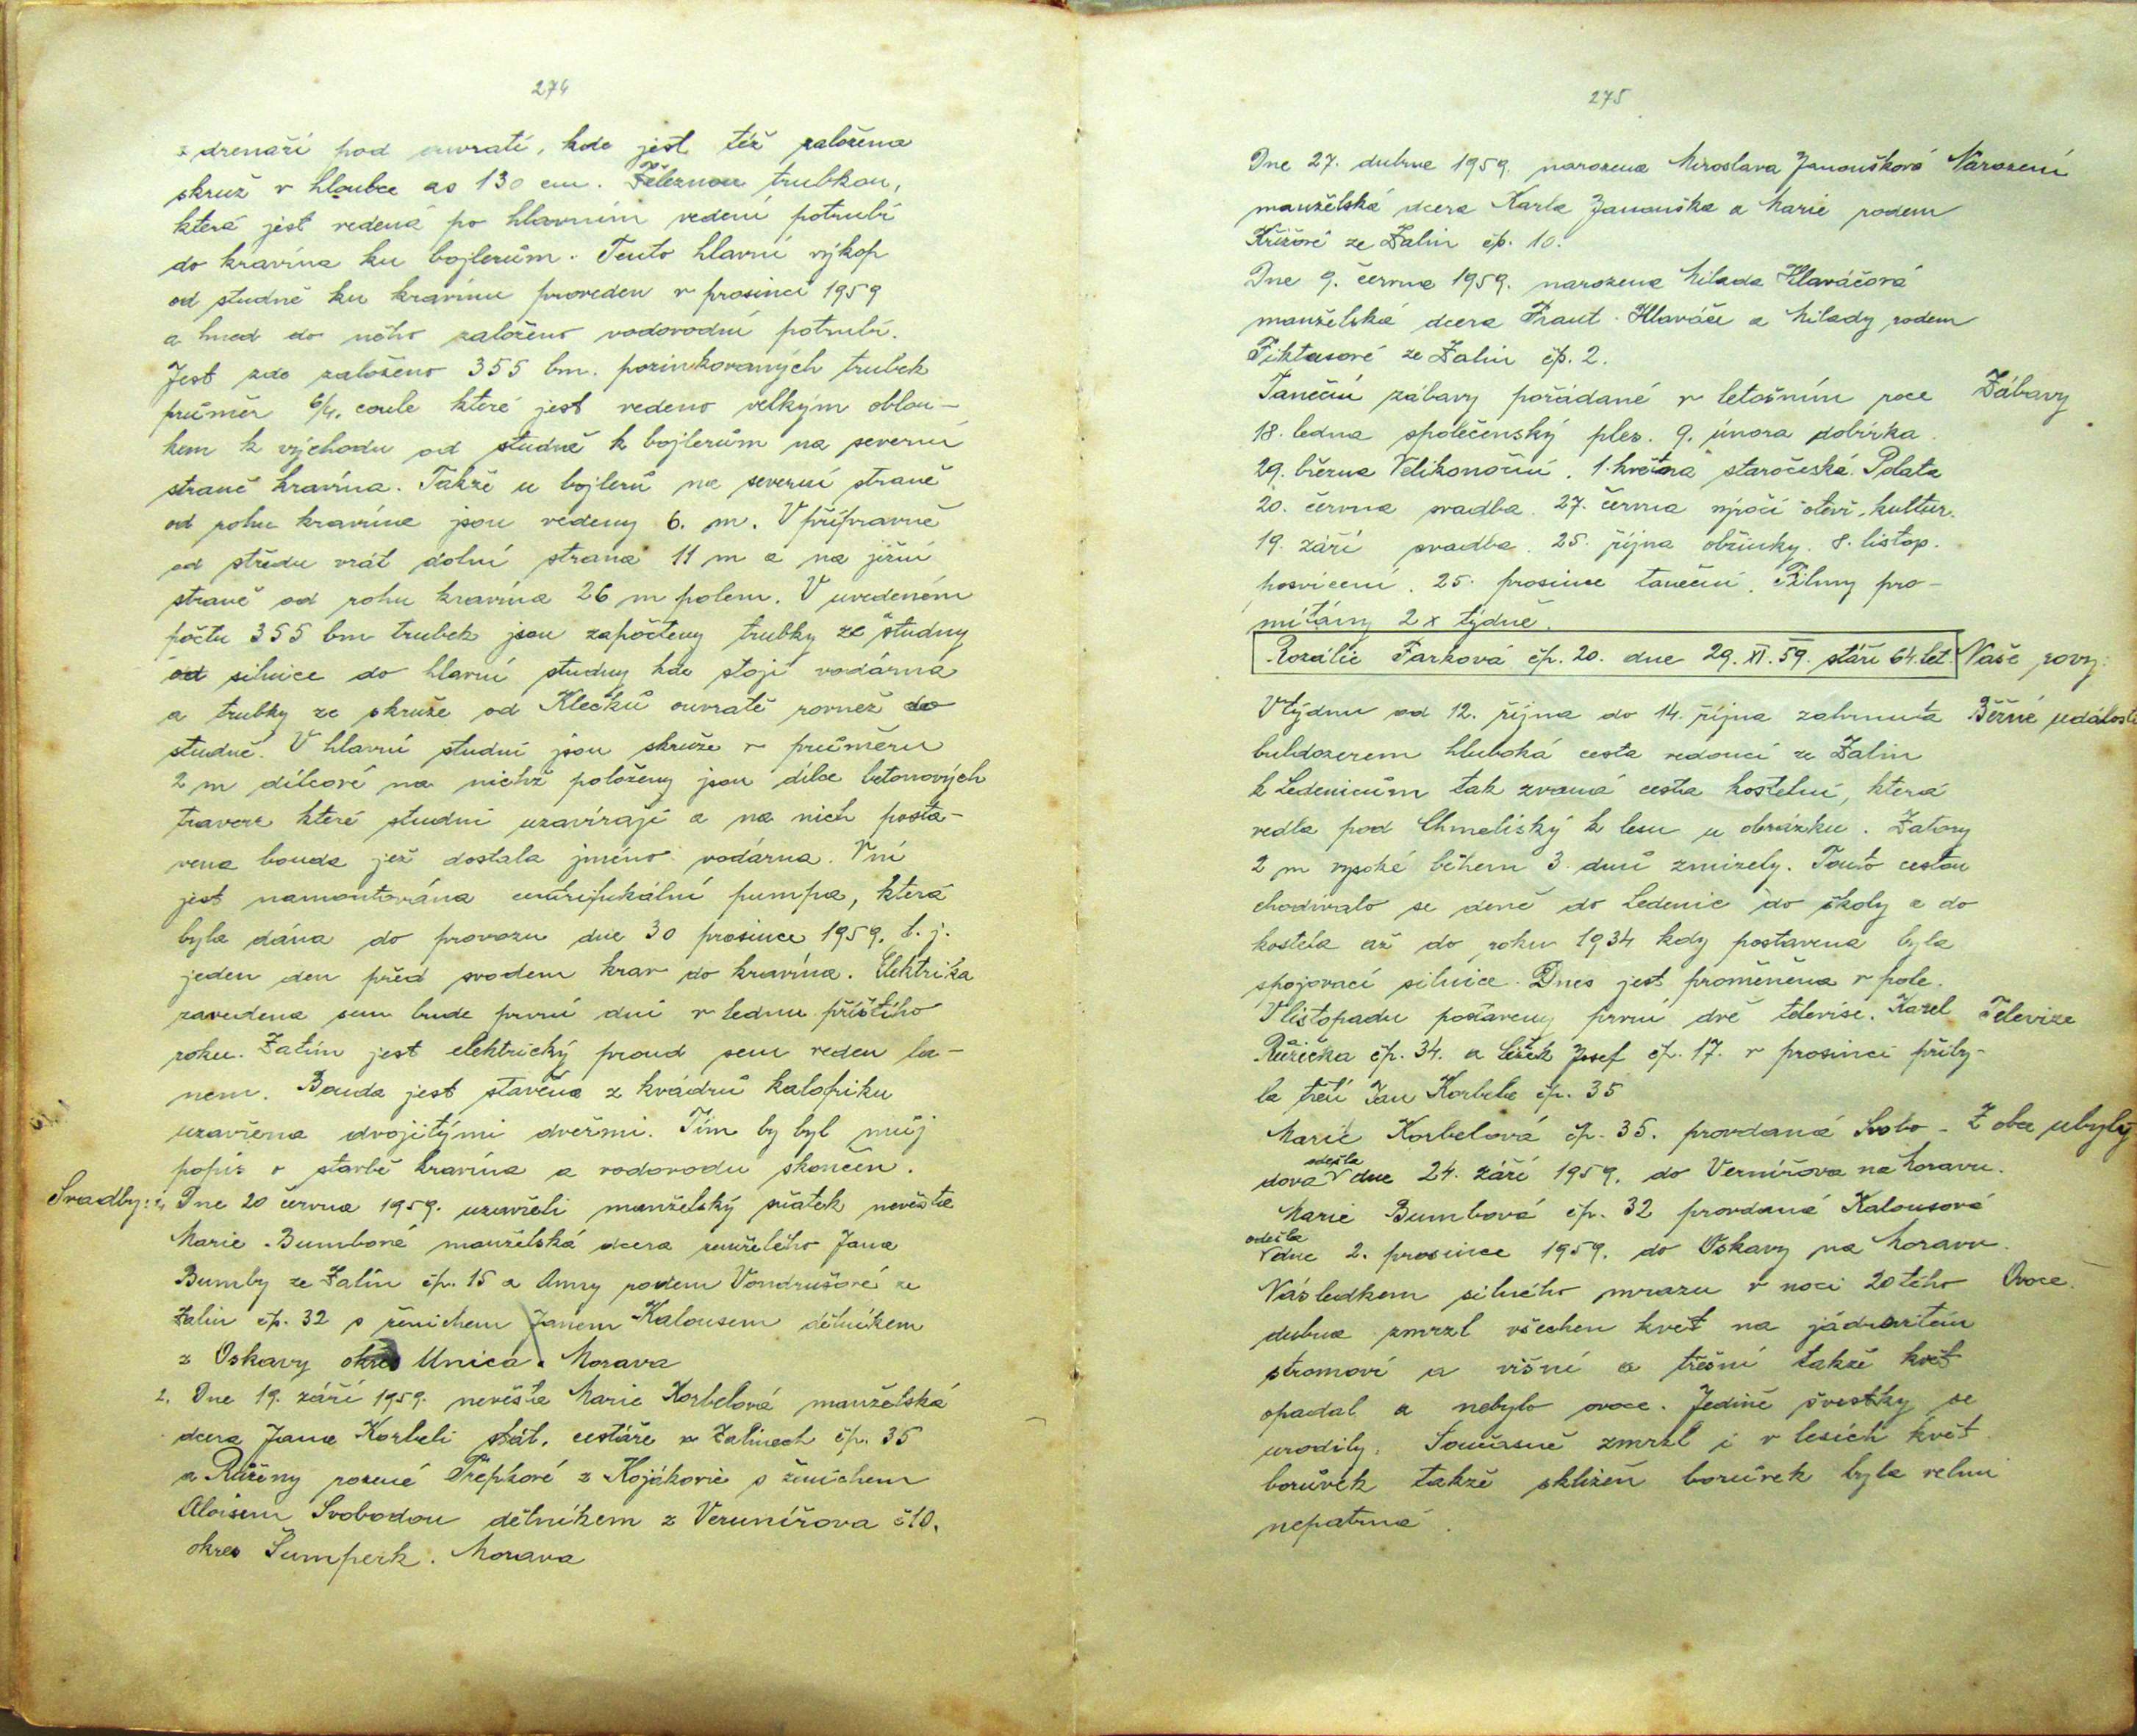 274
z drenáží pod ouvratí, kde jest též založena
skruž v hloubce as 130 cm. Železnou trubkou,
která jest vedená po hlavním vedení potrubí
do kravína ku bojlerům. Tento hlavní výkop
od studně ku kravínu proveden v prosinci 1959
a hned do něho založeno vodovodní potrubí.
Jest zde založeno 355 bm. pozinkovaných trubek
průměr 6/4. coule které jest vedeno velkým oblou-
kem k východu od studně k bojlerům na severní
straně kravína. Takže u bojlerů na severní straně
od rohu kravína jsou vedeny 6. m. V přípravně
od středu vrát dolní strana 11 m a na jižní
straně od rohu kravína 26 m polem. V uvedeném
počtu 355 bm trubek jsou započteny trubky ze studny
od silnice do hlavní studny kde stojí vodárna
a trubky ze skruže od Klečků ouvratě rovněž do
studně. V hlavní studni jsou skruže v průměru
2 m dílcové na nichž položeny jsou dílce betonových
travers které studni uzavírají a na nich posta-
vena bouda jež dostala jméno vodárna. V ní
jest namontována centrifukální pumpa, která
byla dána do provozu dne 30 prosince 1959. t. j.
jeden den před svodem krav do kravína. Elektrika
zavedena sem bude první dni v lednu příštího
roku. Zatím jest elektrický proud sem veden la-
nem. Bouda jest stavěna z kvádrů kalofriku
uzavřena dvojitými dveřmi. Tím by byl můj
popis o stavbě kravína a vodovodu skončen.
Svadby: 1, Dne 20 června 1959. uzavřeli manželský sňatek nevěsta
Marie Bumbová manželská dcera zemřelého Jana
Bumby ze Zalin čp. 15 a Anny rodem Vondrušové ze
Zalin čp. 32 s ženichem Janem Kalousem dělníkem
z Oskavy okres Unica. Morava
2. Dne 19. září 1959. nevěsta Marie Korbelová manželská
dcera Jana Korbeli stát. cestáře v Zalinech čp. 35
a Růženy rozené Třepkové z Kojákovic s ženichem
Aloisem Svobodou dělníkem z Vernířova č10.
okres Šumperk. Morava
275
Dne 27. dubna 1959. narozena Miroslava Janoušková Narození
manželská dcera Karla Janouška a Marie rodem
Křížové ze Zalin čp. 10.
Dne 9. června 1959. narozena Milada Hlaváčová
manželská dcera Frant. Hlaváče a Milady rodem
Fiktusové ze Zalin čp. 2.
Taneční zábavy pořádané v letošním roce Zábavy
18. ledna společenský ples. 9. února dobírka.
29. března Velikonoční. 1. května staročeská. Polata
20. června svadba. 27. června výročí otevř. kultur.
19. září svadba. 25. října obžinky. 8. listop.
posvícení. 25. prosince taneční. Filmy pro-
mítány 2 x týdně.
Rozálie Farková čp. 20. dne 29. XI. 59. stáří 64. let. Naše rovy:
V týdnu od 12. října do 14. října zahrnuta Běžné události
buldozerem hluboká cesta vedoucí ze Zalin
k Ledenicům tak zvaná cesta kostelní, která
vedla pod Chmelisky k lesu u obrázku. Zátory
2 m vysoké během 3 dnů zmizely. Touto cestou
chodívalo se deně do Ledenic do školy a do
kostela až do roku 1934 kdy postavena byla
spojovací silnice. Dnes jest proměněna v pole.
V listopadu postaveny první dvě televise. Karel Televize
Růžička čp. 34. a Lížek Josef čp. 17. v prosinci přiby-
la třetí Jan Korbele čp. 35
Marie Korbelová čp. 35. provdaná Svobo- Z obce ubyly
dova odešla dne 24. září 1959. do Vernířova na Moravu.
Marie Bumbová čp. 32 provdaná Kalousová
odešla dne 2. prosince 1959. do Oskavy na Moravu.
Následkem silného mrazu v noci 20 tého Ovoce.
dubna zmrzl všechen květ na jádrovitém
stromoví a višní a třešní takže květ
opadal a nebylo ovoce. Jedině švestky se
urodily. Současně zmrzl i v lesích květ
borůvek takže sklizeň borůvek byla velmi
nepatrná.